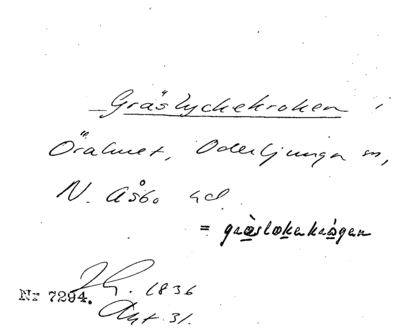 Gräslyckekroken i
Örahuset, Oderljunga sn,
N. Åsbo hd
= gräslokakrågan
Nr 7294.
1836
Akt 31.